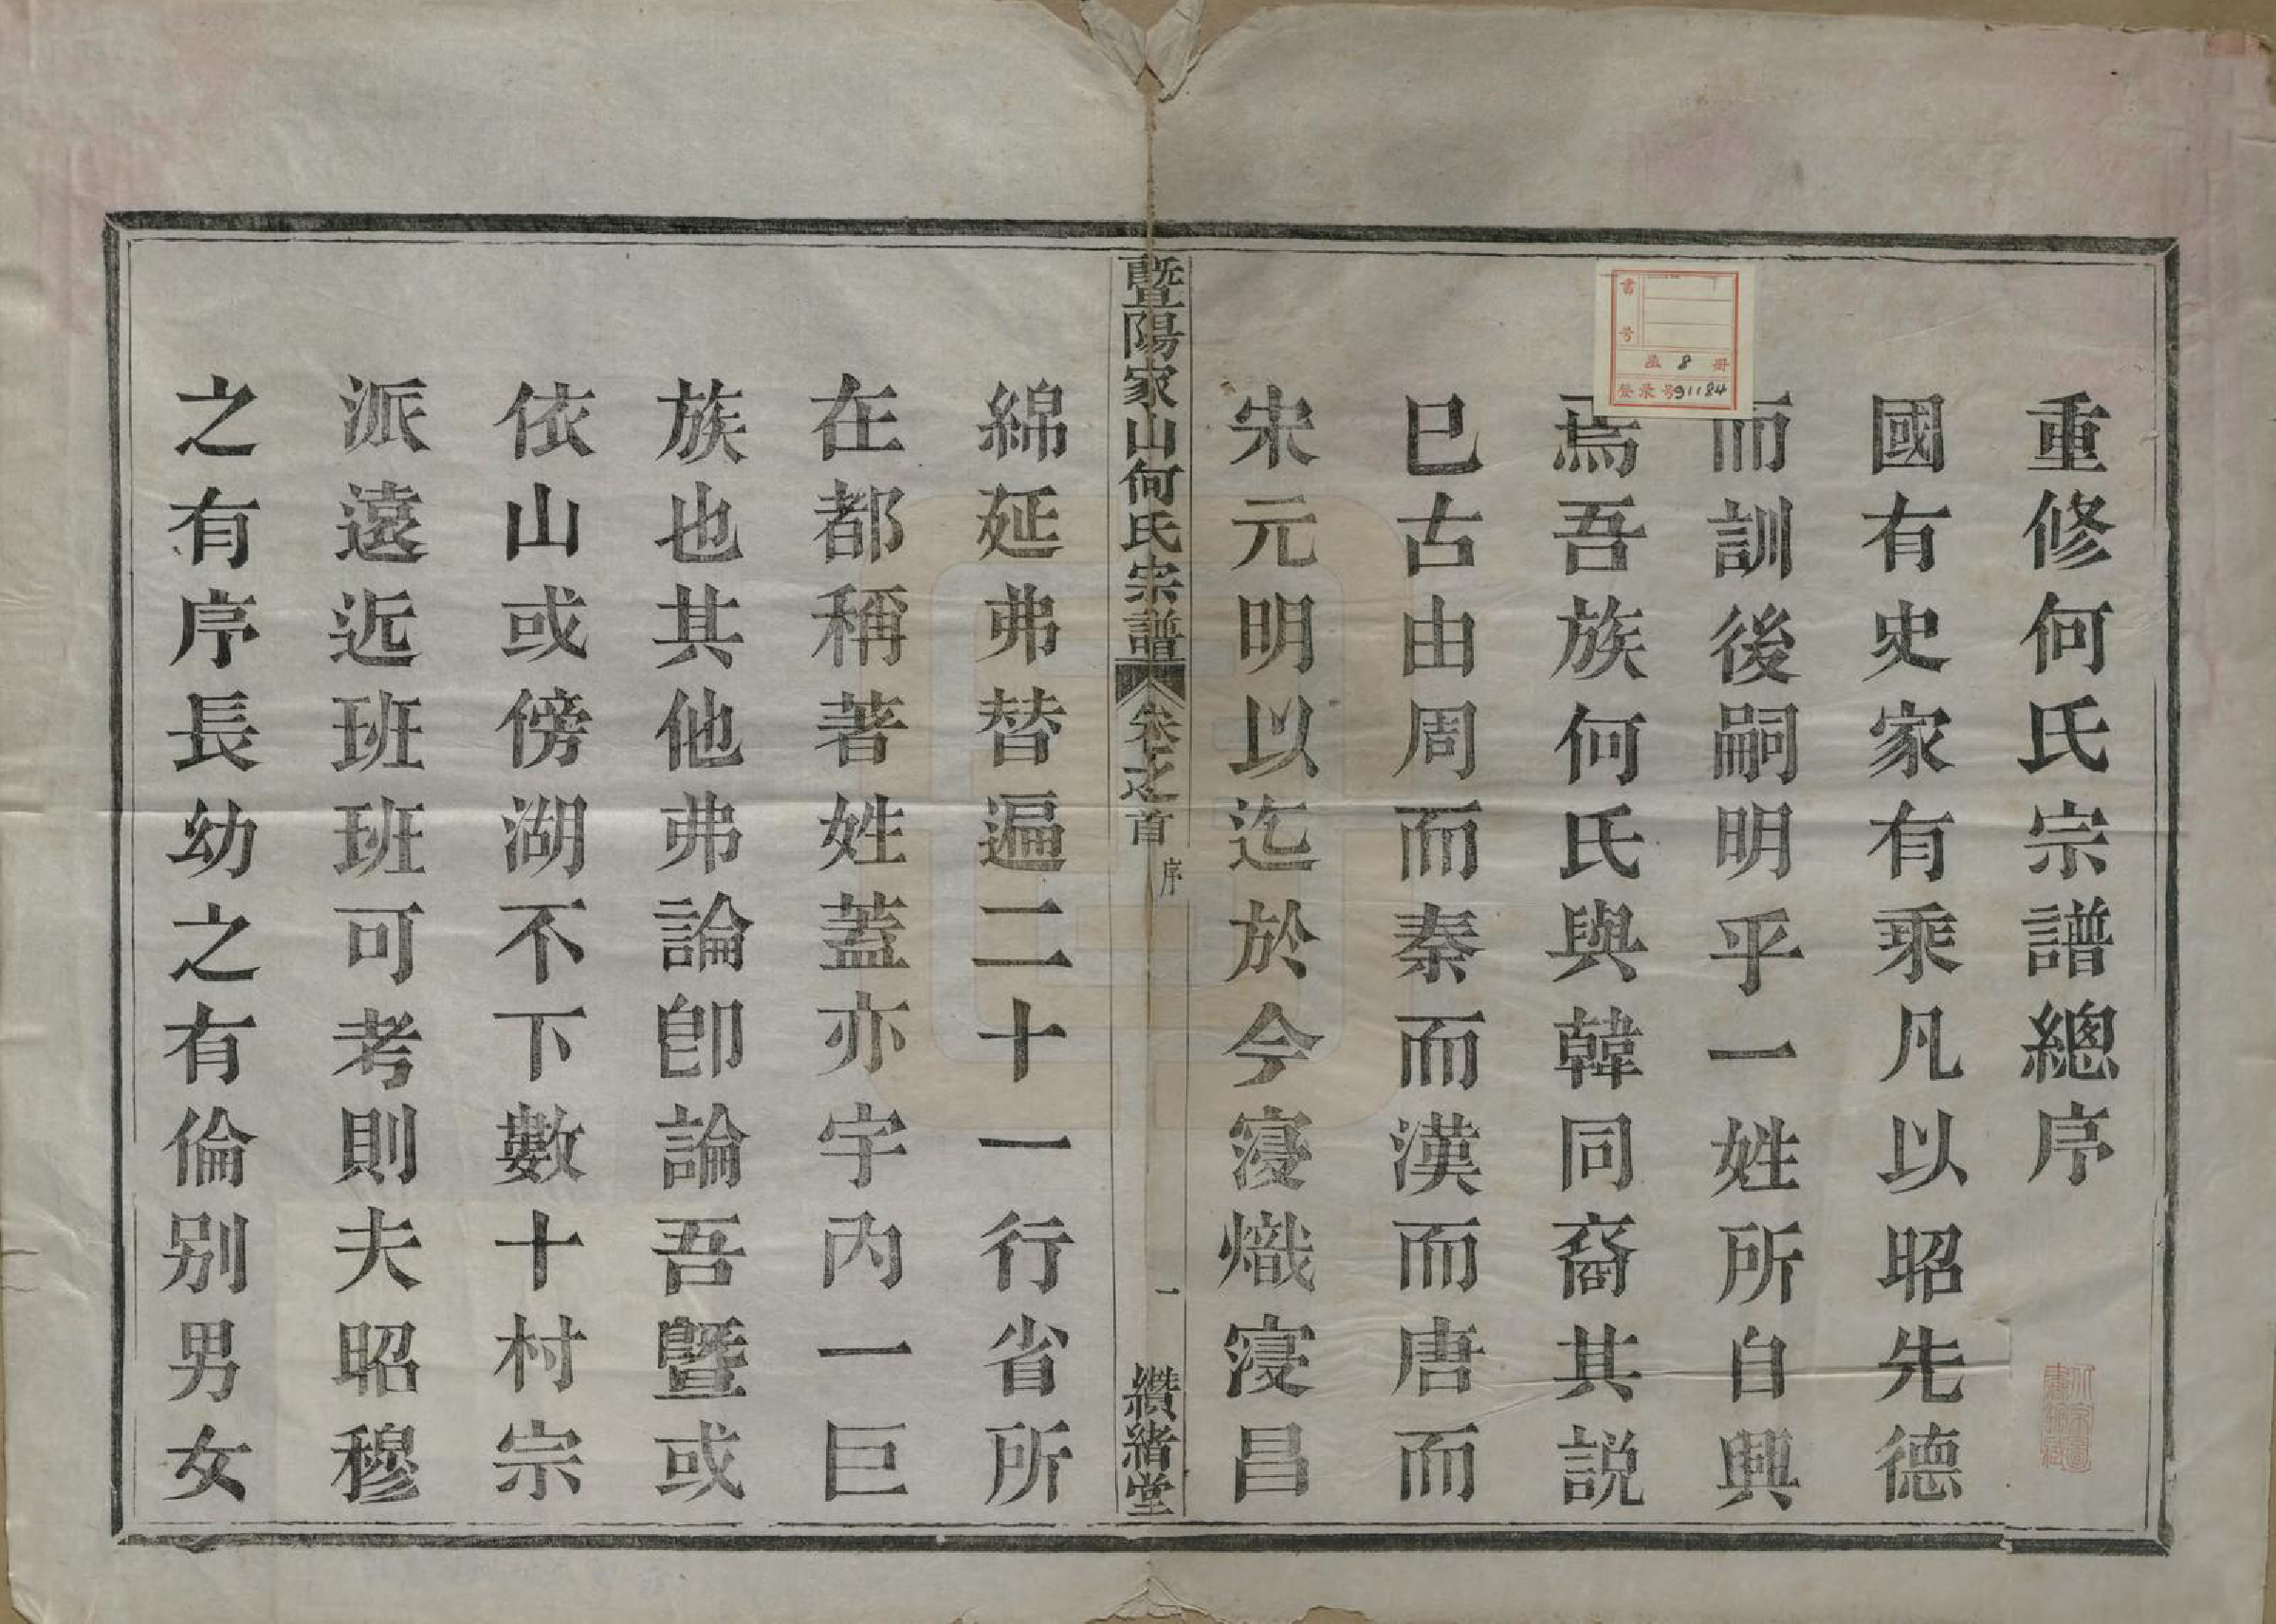 重修何氏宗譜總序
國有史家有乘凡以昭先德
而訓後嗣明乎一姓所自興
焉吾族何氏與韓同裔其説
已古由周而秦而漢而唐而
宋元明以迄於今寖熾寖昌
暨陽家山何氏宗譜 卷之首 序 一 纘緒堂
綿延弗替遍二十一行省所
在都稱著姓蓋亦宇內一巨
族也其他弗論卽論吾暨或
依山或傍湖不下數十村宗
派遠近班班可考則夫昭穆
之有序長幼之有倫别男女
書号
函 8 册
登录号 91184